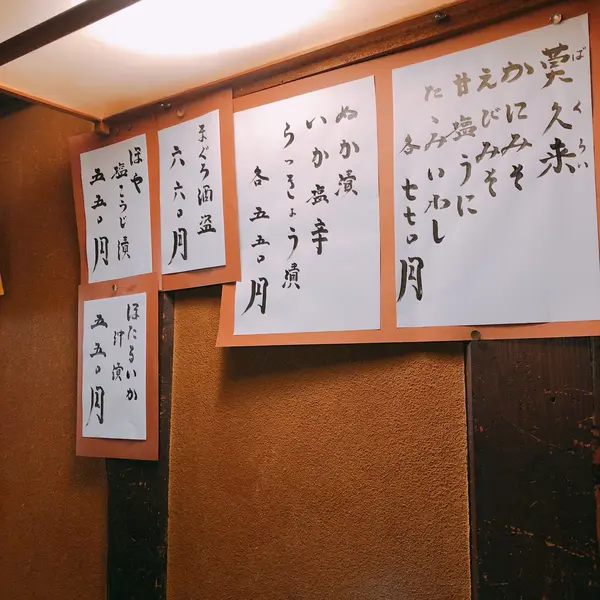 莫久来
ばくらい
かにみそ
えびみそ
甘塩うに
たたみいわし
各七七〇円
ぬか漬
いか塩辛
らっきょう漬
各五五〇円
まぐろ酒盗
六六〇円
ほや
塩こうじ漬
五五〇円
ほたるいか
沖漬
五五〇円